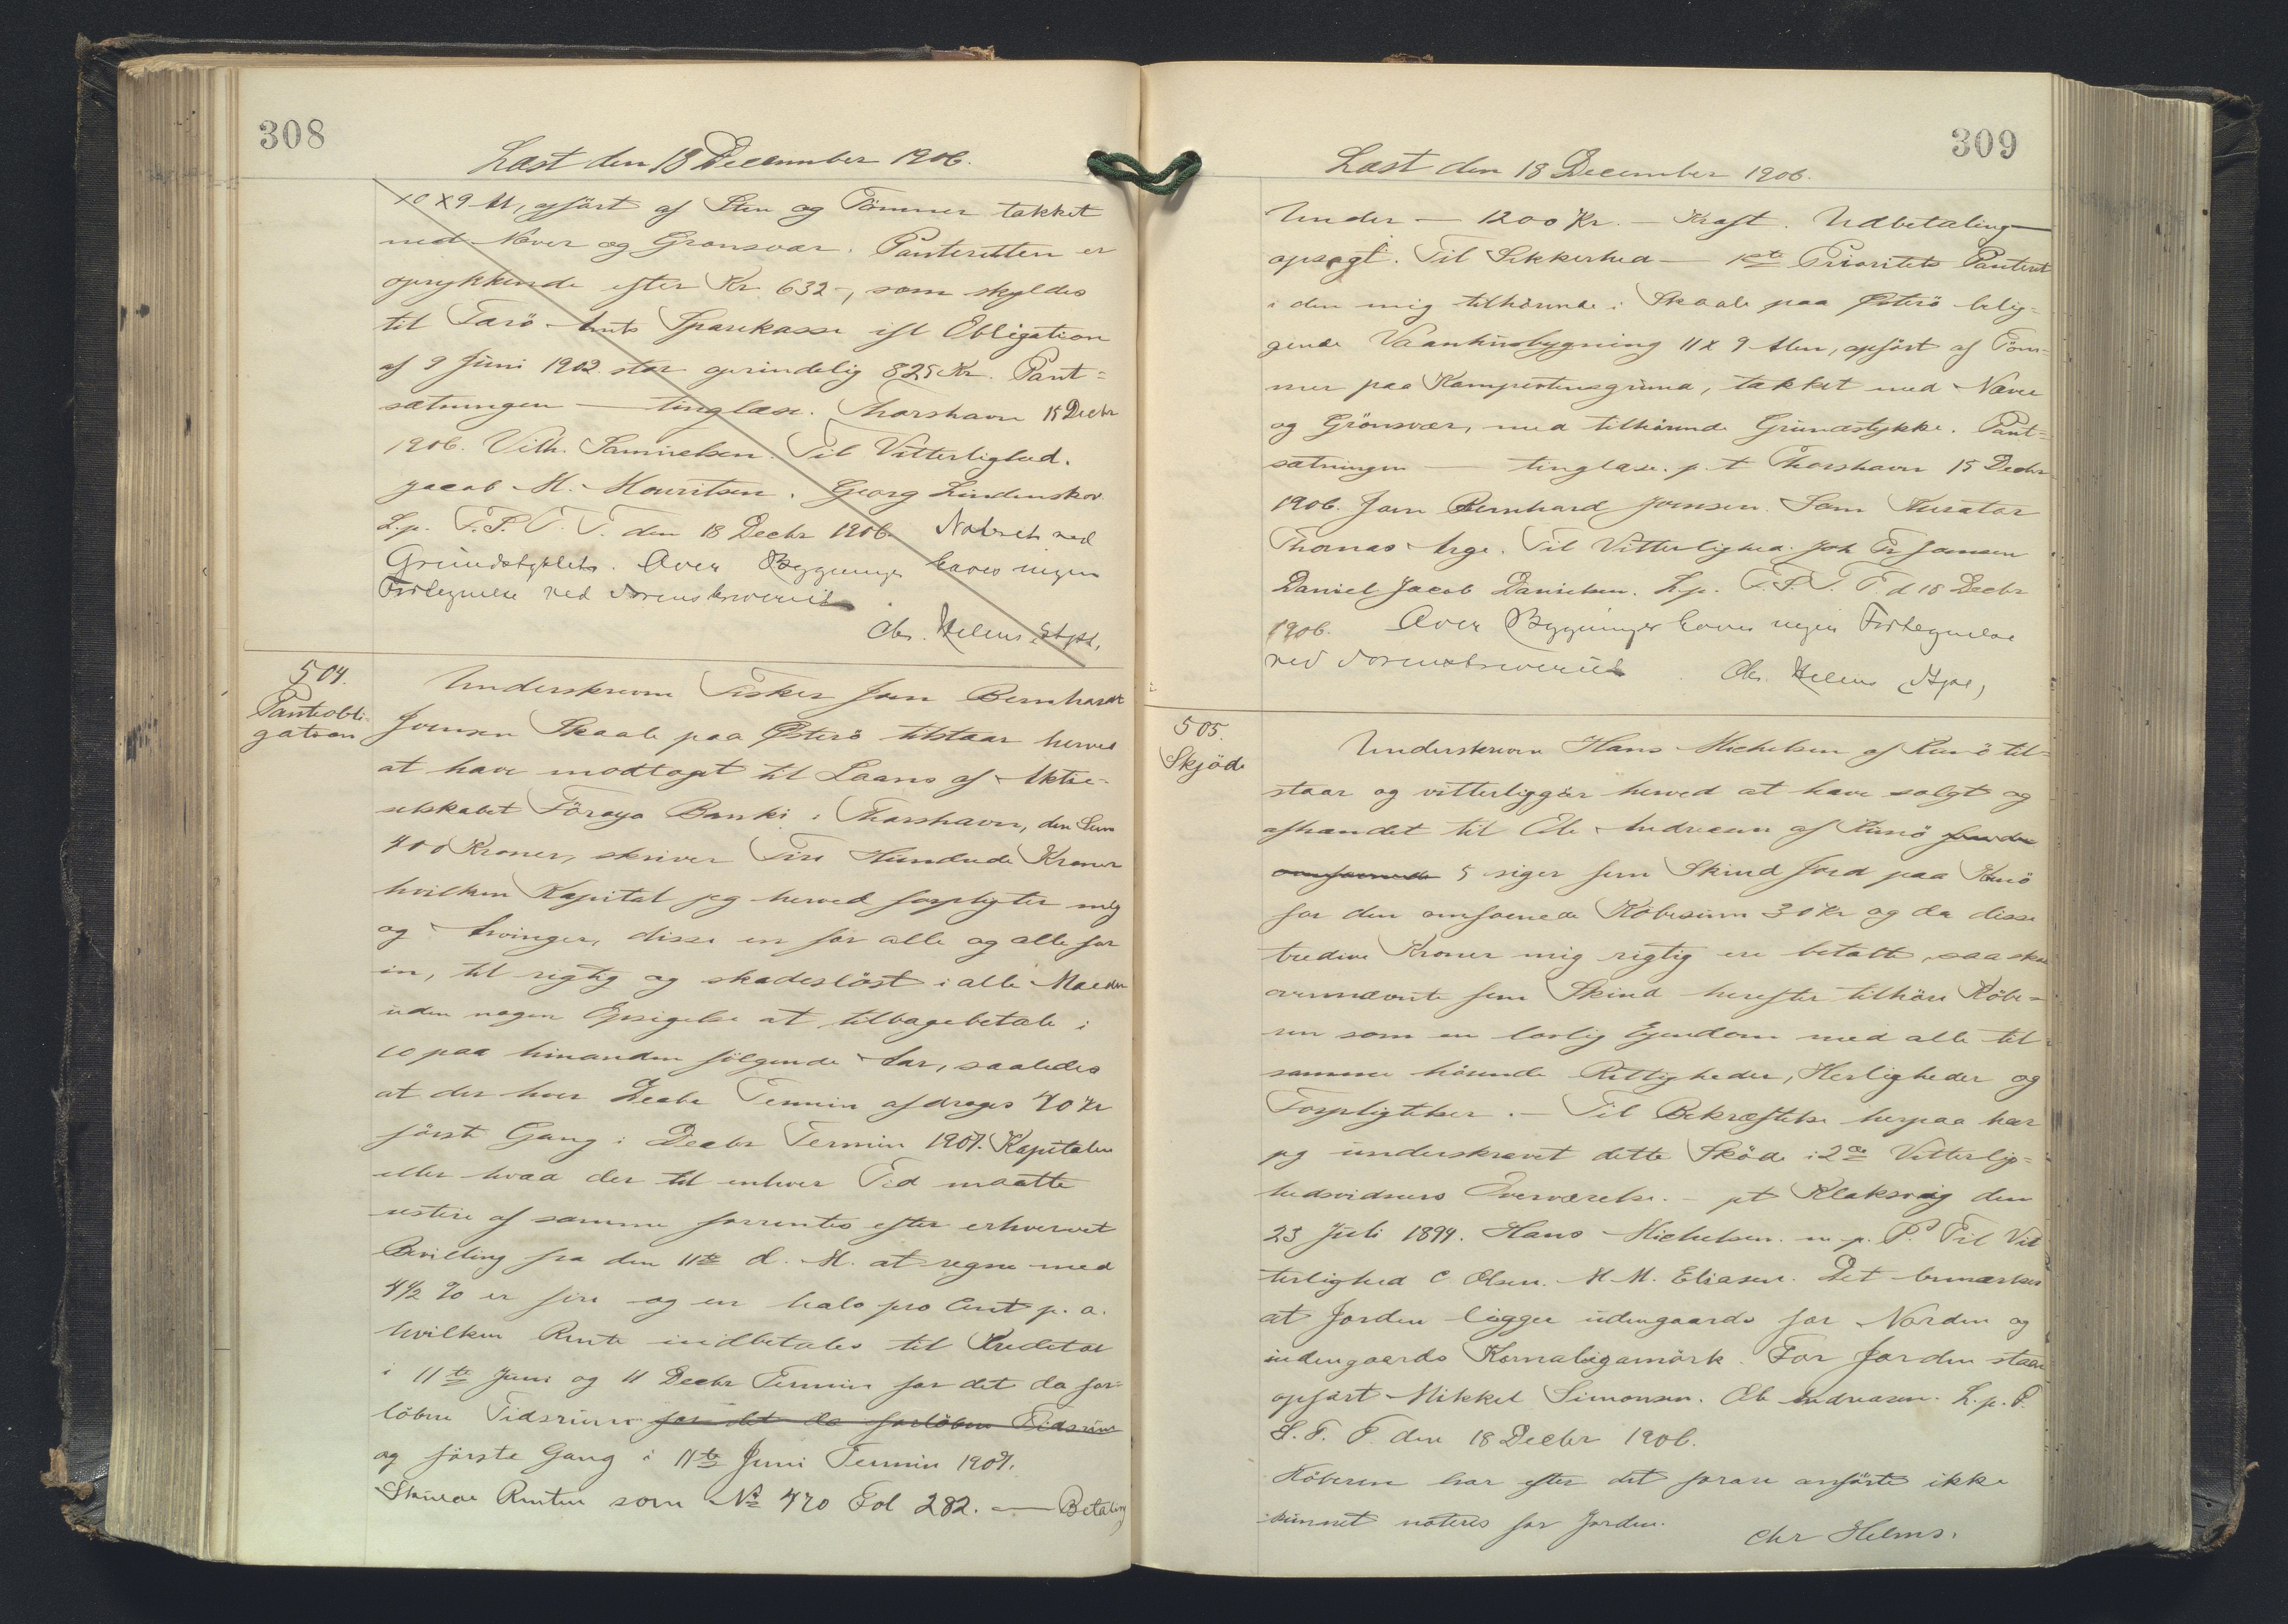 308
Læst den 18 December 1906.
10 x 9 Al, opført af Sten og Tömmer takket
med Næver og Grønsvær. Panteretten er
oprykkende efter Kr. 632-, som skyldes
til Færö Amts Sparekasse ifl Obligation
af 9 Juni 1902 stor oprindelig 825 Kr. Pant=
sætningen — tinglæse. Thorshavn 15 Decbr
1906. Vilh. Samuelsen. Til Vitterlighed.
Jacob M. Mouritsen. Georg Lindenskov.
L.p. F.P.O.T. den 18 Decbr 1906. Noteret ved
Grundstykket. Over Bygninger haves ingen
Fortegnelse ved Sorenskriveriet
Chr. Helms Stpt.
504.
Panteobli-
gation
Underskrevne Fisker Joen Bernhardt
Joensen Skaale paa Østerö tilstaar herved
at have modtaget til Laans af Aktie-
selskabet Föroya Banki i Thorshavn, den Sum
400 Kroner, skriver Fire Hundrede Kroner
hvilken Kapital jeg herved forpligter mig
og Arvinger, disse en for alle og alle for
en, til rigtig og skadeslöst i alle Maader
uden nogen Opsigelse at tilbagebetale i
10 paa hinanden fölgende Aar, saaledes
at der hver Decbr Termin afdrages 40 Kr
förste Gang i Decbr Termin 1907. Kapitalen
eller hvad der til enhver Tid maatte
restere af samme forrentes efter erhvervet
Bevilling fra den 11te d. M. at regne med
4 1/2 % er fire og en halv pro Cent p. a.
hvilken Rente indbetales til Kreditor
i 11te Juni og 11 Decbr Termin for det da for-
löbne Tidsrum for det da forlöbne Tidsrum
og förste Gang i 11te Juni Termin 1907.
Skulde Renten som No 470 Fol 282. — Betaling
309
Læst den 18 December 1906.
Under — 1200 Kr. — Kraft. Udbetaling —
opsagt. Til Sikkerhed — 1ste Prioritets Panteret
i den mig tilhörende i Skaale paa Österö belig-
gende Vaanhusbygning 11 x 9 Alen, opfört af Töm-
mer paa Kampestensgrund, takket med Næver
og Grönsvær, med tilhörende Grundstykke. Pant=
sætningen — tinglæse. p. t Thorshavn 15 Decbr
1906. Joen Bernhard Joensen. Som Kurator
Thomas Arge. Til Vitterlighed: Joh Fr Joensen
Daniel Jacob Danielsen. L.p. F.P.O.T. d 18 Decbr
1906. Over Bygninger haves ingen Fortegnelse
ved Sorenskriveriet. Chr. Helms Stpt,
505.
Skjöde
Underskrevne Hans Michelsen af Kunö til=
staar og vitterliggör herved at have solgt og
afhændet til Ole Andreasen af Kunö for den
omforenede 5 siger fem Skind Jord paa Kunö
for den omforenede Köbesum 30 Kr og da disse
tredive Kroner mig rigtig ere betalte, saa skal
ovennævnte fem Skind herefter tilhöre Köbe=
ren som en lovlig Ejendom med alle til
samme hörende Rettigheder, Herligheder og
Forpligtelser. — Til Bekræftelse herpaa har
jeg underskrevet dette Sköde i 2de Vitterlig=
hedsvidners Overværelse. — pt Klaksvig den
23 Juli 1899. Hans Michelsen. m. p. P. Til Vit
terlighed C. Olsen. M M. Eliasen. Det bemærkes
at Jorden ligger udengaards for Norden og
indengaards Kornabögamörk. For Jorden staar
opfört Mikkel Simonsen. Ole Andreasen. L. p. P.
S. T. T. den 18 Decbr 1906.
Köberen har efter det foran anförte ikke
kunnet noteres for Jorden.
Chr Helms.